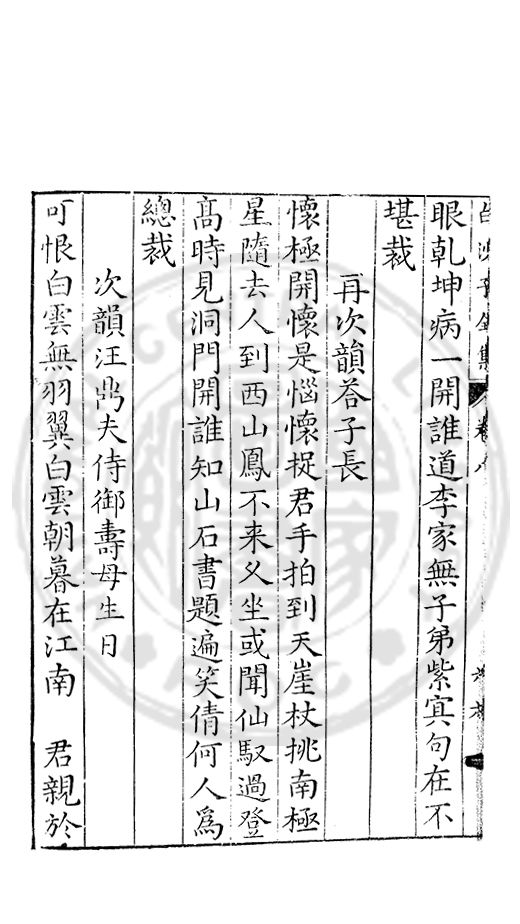 白沙子全集 卷八
眼乾坤病一開誰道李家無子弟紫寘句在不
堪裁
再次韻荅子長
懷極開懷是惱懷捉君手拍到天崖杖挑南極
星隨去人到西山鳳不来久坐或聞仙馭過登
高時見洞門開誰知山石書題遍笑倩何人爲
總裁
次韻汪鼑夫侍御壽母生日
叮恨白雲無羽翼白雲朝暮在江南 君親於